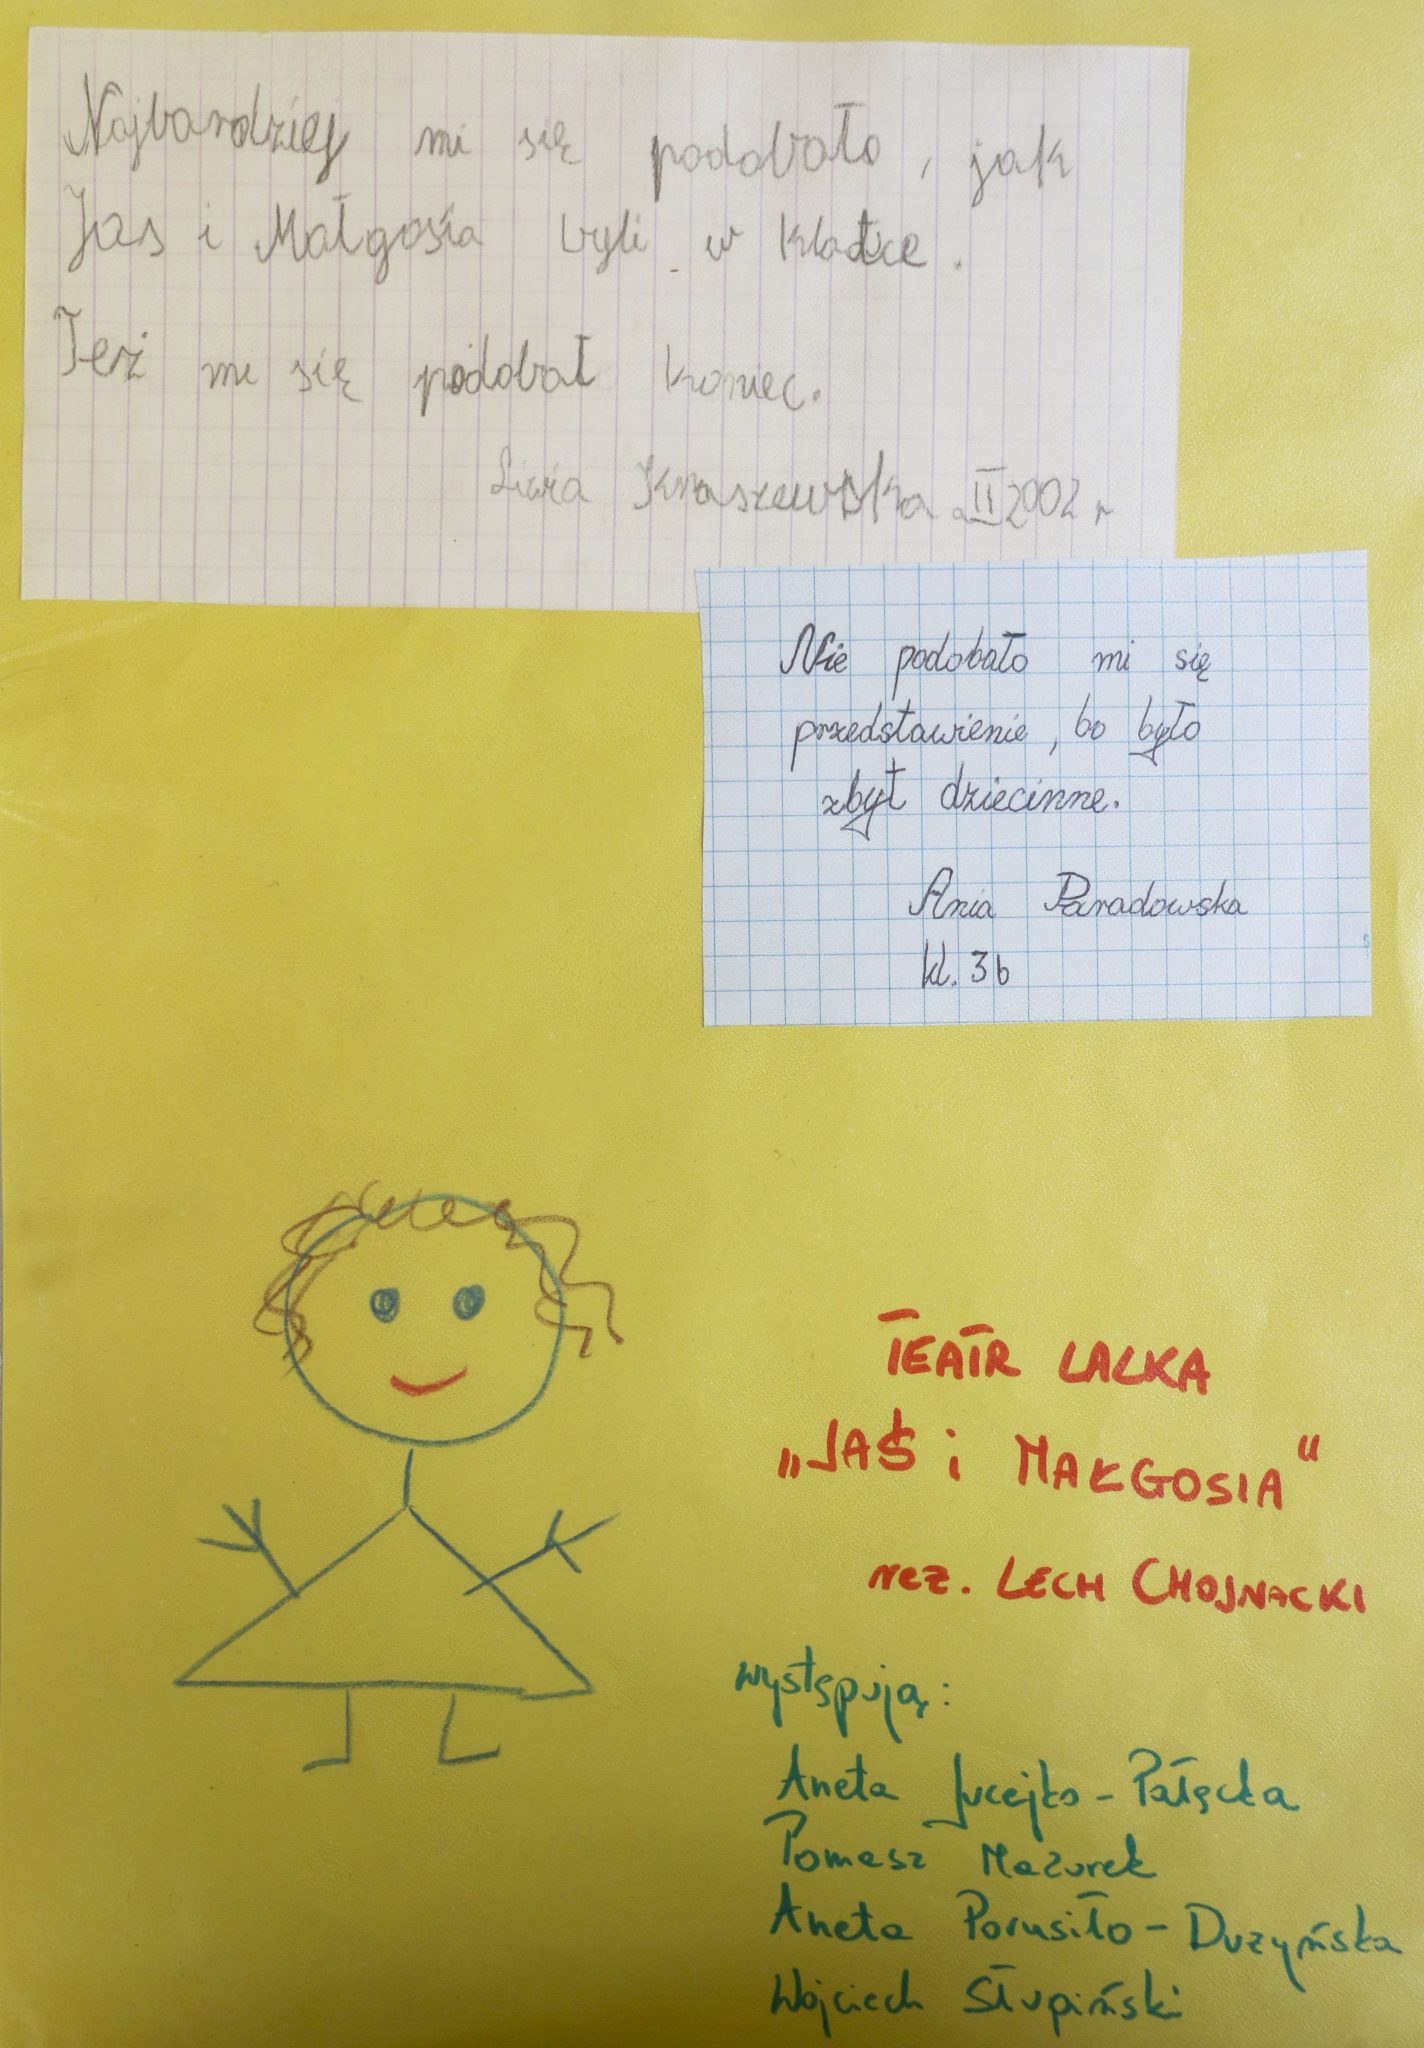 Najbardziej mi się podobało, jak
Jas i Małgosia byli w klatce.
Też mi się podobał koniec.
Kraszewska II 2002 r
Nie podobało mi się
przedstawienie, bo było
zbyt dziecinne.
Ania Paradowska
kl. 3b
TEATR LALKA
„JAŚ i MAŁGOSIA"
reż. LECH CHOJNACKI
występują:
Aneta Jucejko-Pałęcka
Tomasz Mazurek
Aneta Porusiło-Dużyńska
Wojciech Słupiński